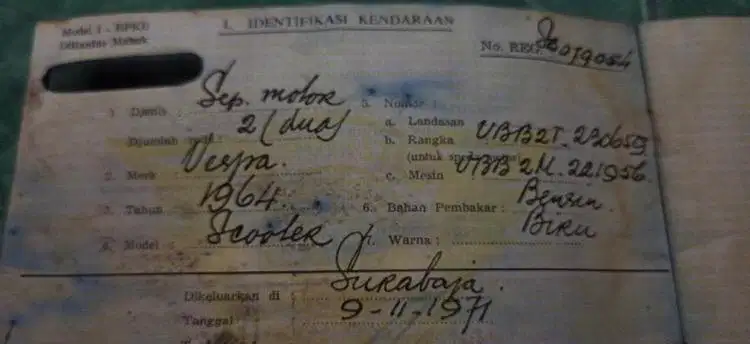 Model I - BPKB
Ditlantas Mabak
I. IDENTIFIKASI KENDARAAN
No. REG. 019054
1. Djenis : Sep. motor
Djumlah : 2 (dua)
2. Merk : Vespa.
3. Tahun : 1964.
4. Model : Scooter
5. Nomor :
a. Landasan
b. Rangka VBB2T. 230659
(untuk
c. Mesin VBB2M. 221956.
6. Bahan Pembakar : Bensin.
7. Warna : Biru
Dikeluarkan di : Surabaja.
Tanggal : 9-11-1971